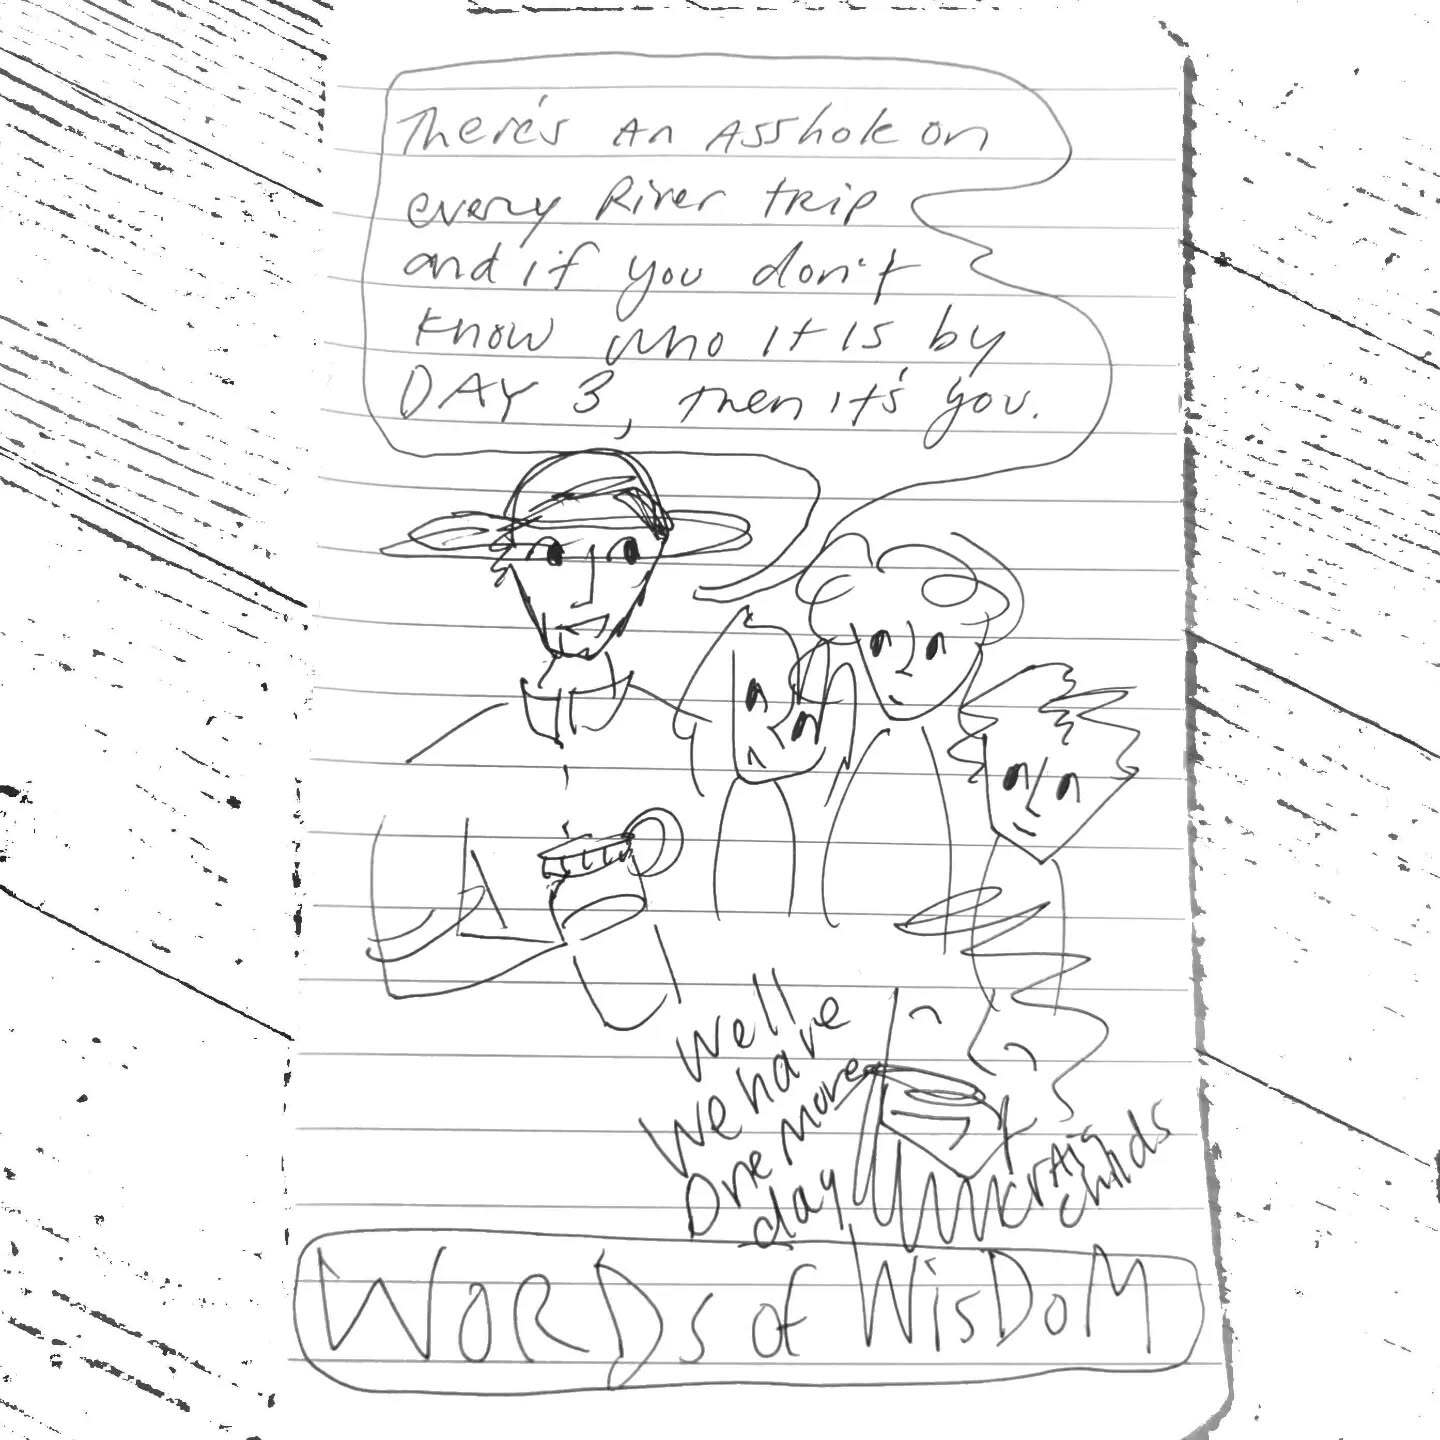 There's An Asshole on
every River trip
and if you don't
know who it is by
DAY 3, then it's you.
Well
We have
One more
day
CRAig
childs
WORDs of WisDoM